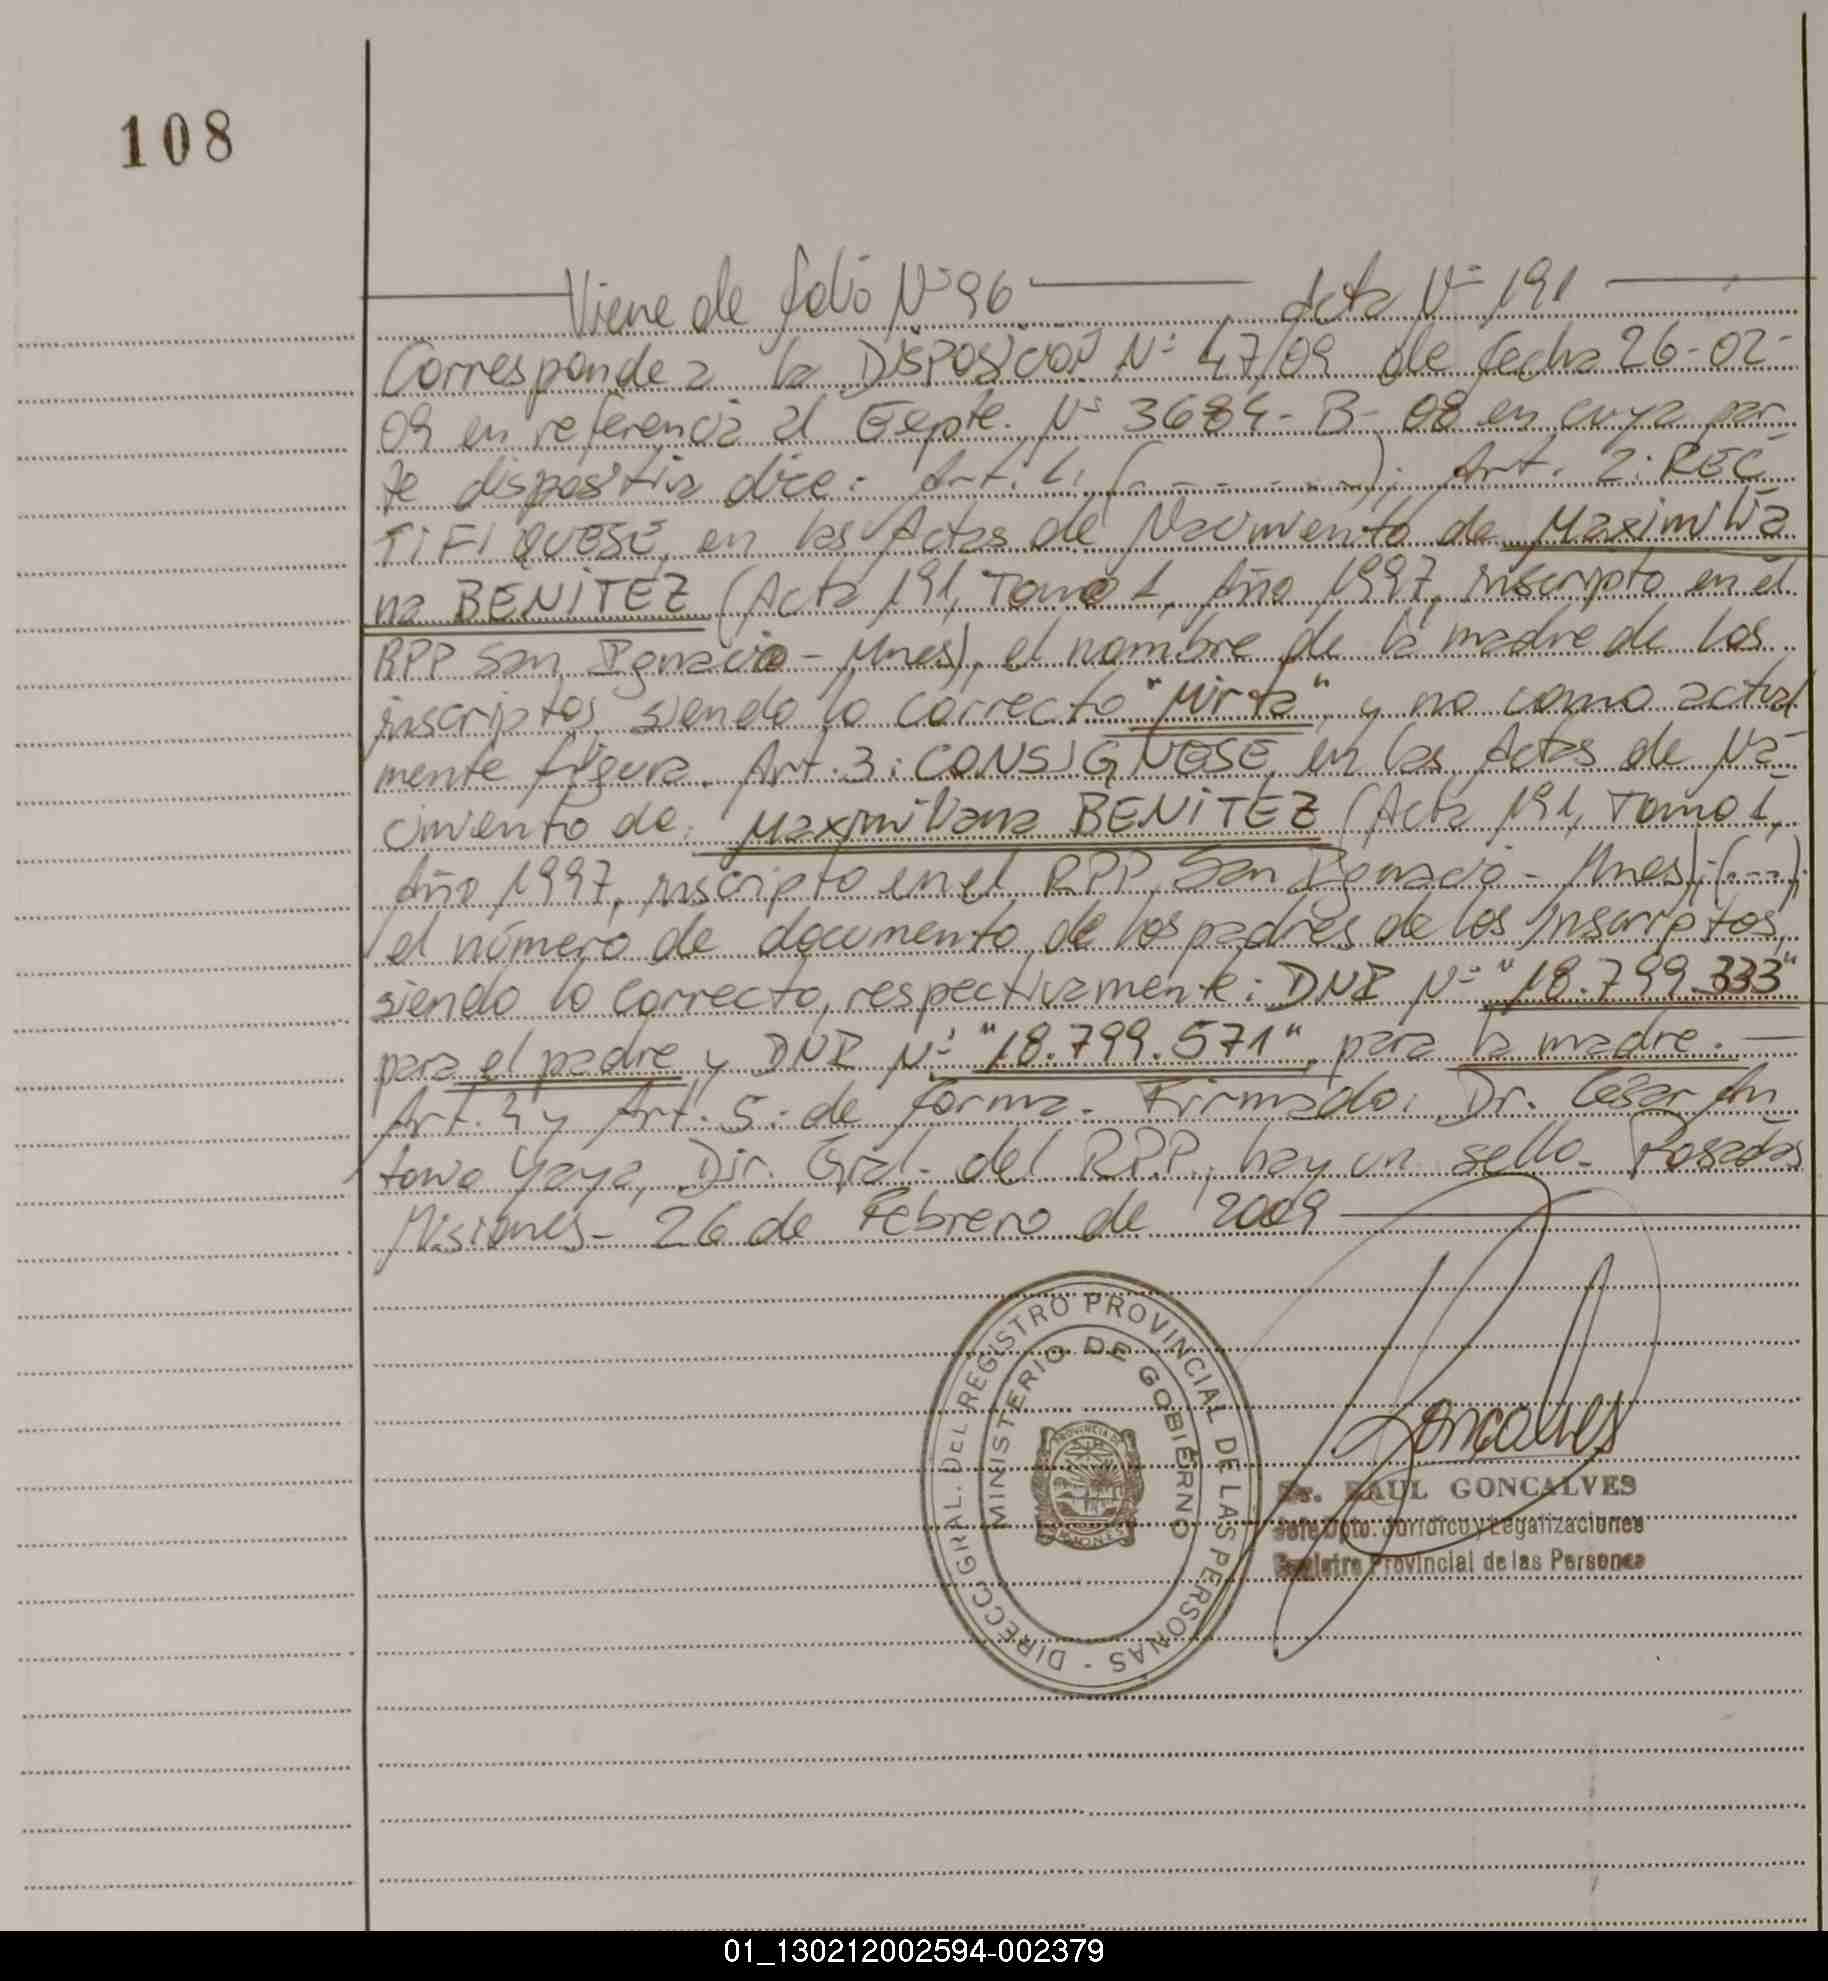 108
Viene de folio Nº 96 Acta Nº 191
Corresponde a la DisPOSICION Nº 47/09 de fecha 26-02-
09 en referencia al Expte. Nº 3684-B-08 en cuya par-
te dispositiva dice: Art. 1: (- - - - - - -). Art. 2: REC-
TiFiQUESE, en las Actas de Nacimiento de Maximilia
na BENITEZ (Acta 191, Tomo 1, Año 1997, inscripto en el
RPP San Ignacio - Mnes), el nombre de la madre de los
inscriptos, siendo lo correcto "Mirta", y no como actual
mente figura. Art. 3: CONSIGNESE, en las Actas de Na-
cimiento de: Maximiliana BENITEZ (Acta 191, Tomo 1,
Año 1997, inscripto en el RPP, San Ignacio - Mnes); (---);
el número de documento de los padres de los Inscriptos,
siendo lo correcto, respectivamente: DNI Nº "18.799.333"
para el padre y DNI Nº "18.799.571", para la madre. —
Art. 4 y Art. 5: de forma. Firmado: Dr. César An
tonio Yaya, Dir. Gral. del RPP., hay un sello. Posadas
Misiones - 26 de Febrero de 2009
DIRECC. GRAL. DEL REGISTRO PROVINCIAL DE LAS PERSONAS -
MINISTERIO DE GOBIERNO
PROVINCIA DE
MISIONES
Goncalves
Sr. RAUL GONCALVES
Jefe Dpto. Jurídico y Legalizaciones
Registro Provincial de las Personas
01_130212002594-002379